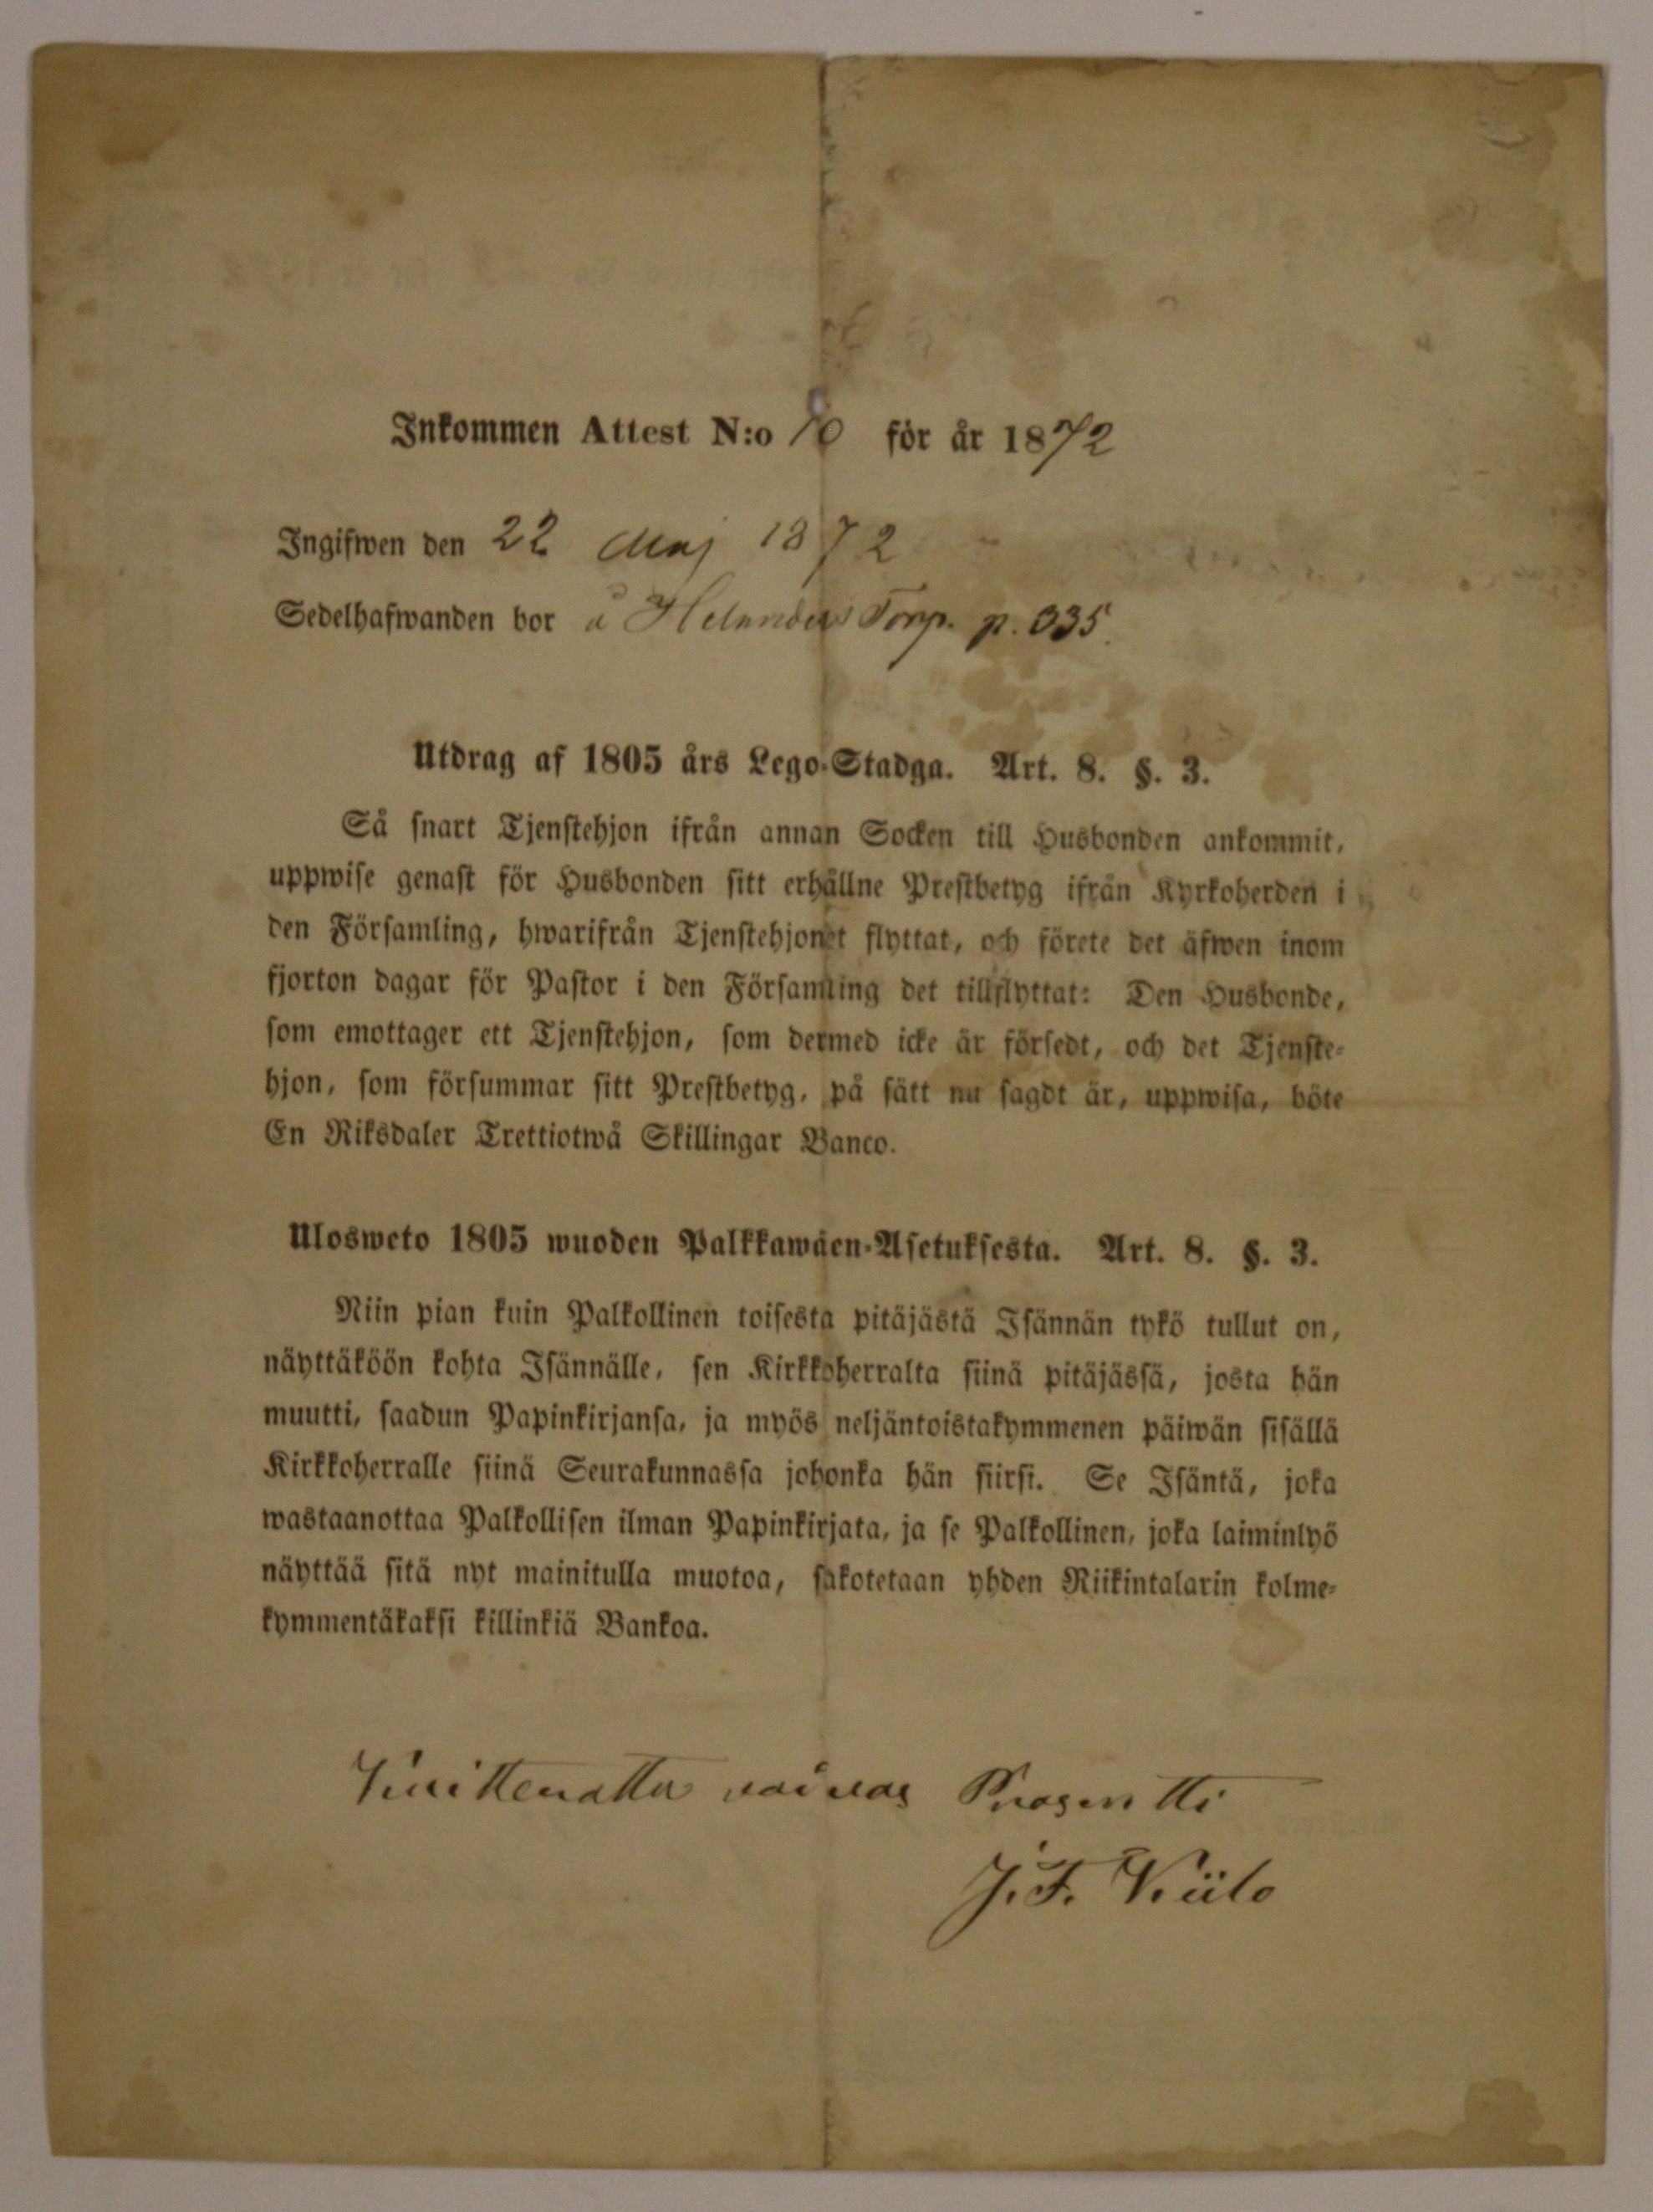 Inkommen Attest N:o 10 för år 1872
Ingifwen den 22 Maj 1872
Sedelhafwanden bor å Helanders Torp. p. 335.
Utdrag af 1805 års Lego-Stadga. Art. 8. §. 3.
Så snart Tjenstehjon ifrån annan Socken till Husbonden ankommit,
uppwise genast för Husbonden sitt erhållne Prestbetyg ifrån Kyrkoherden i
den Församling, hwarifrån Tjenstehjonet flyttat, och förete det äfwen inom
fjorton dagar för Pastor i den Församling det tillflyttat: Den Husbonde,
som emottager ett Tjenstehjon, som dermed icke är försedt, och det Tjenste-
hjon, som försummar sitt Prestbetyg, på sätt nu sagdt är, uppwisa, böte
En Riksdaler Trettiotwå Skillingar Banco.
Ulosweto 1805 wuoden Palkkawäen-Asetuksesta. Art. 8. §. 3.
Niin pian kuin Palkollinen toisesta pitäjästä Isännän tykö tullut on,
näyttäköön kohta Isännälle, sen Kirkkoherralta siinä pitäjässä, josta hän
muutti, saadun Papinkirjansa, ja myös neljäntoistakymmenen päiwän sisällä
Kirkkoherralle siinä Seurakunnassa johonka hän siirsi. Se Isäntä, joka
wastaanottaa Palkollisen ilman Papinkirjata, ja se Palkollinen, joka laiminlyö
näyttää sitä nyt mainitulla muotoa, sakotetaan yhden Riikintalarin kolme-
kymmentäkaksi killinkiä Bankoa.
J. F.